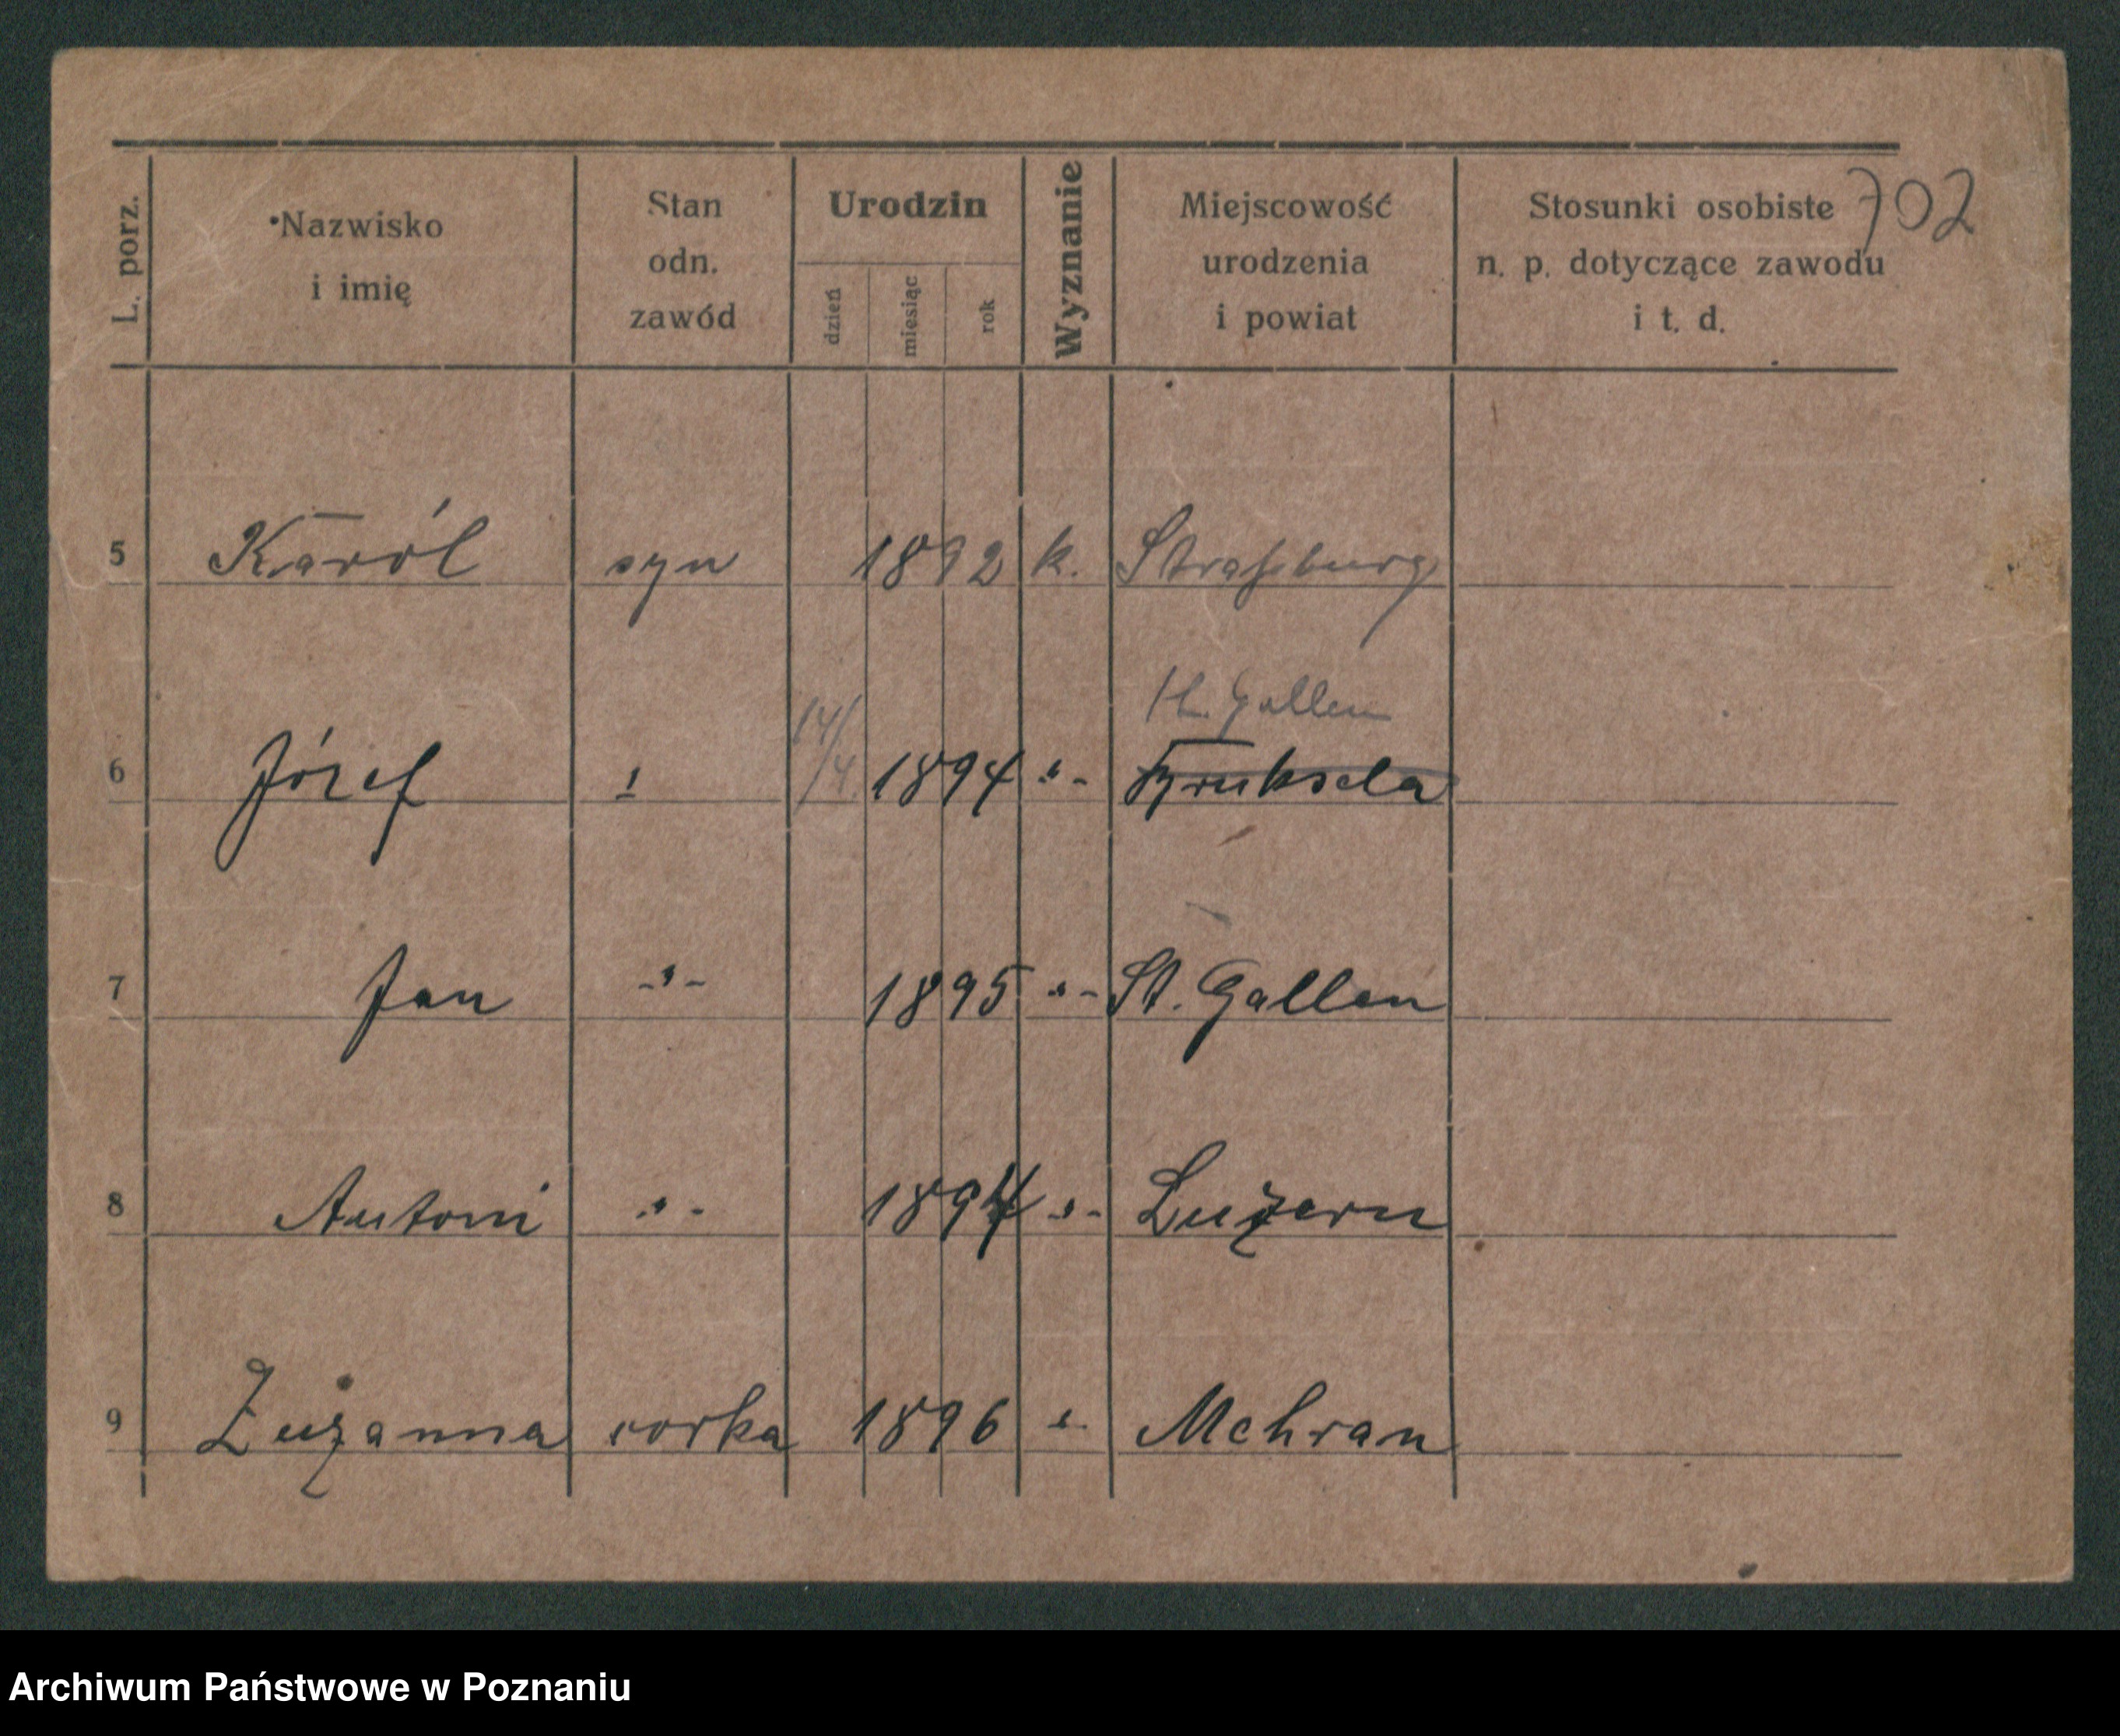 702
L. porz.
Nazwisko i imię
Stan odn. zawód
Urodzin
dzień miesiąc rok
Wyznanie
Miejscowość urodzenia i powiat
Stosunki osobiste n. p. dotyczące zawodu i t. d.
5 Karól syn 1892 k. Straßburg
St. Gallen
6 Józef 14/4 1894 Bruksela
7 Jan -"- 1895 "- St. Gallen
8 Antoni "- 1894 -"- Luzern
9 Zuzanna corka 1896 " Mehran
Archiwum Państwowe w Poznaniu